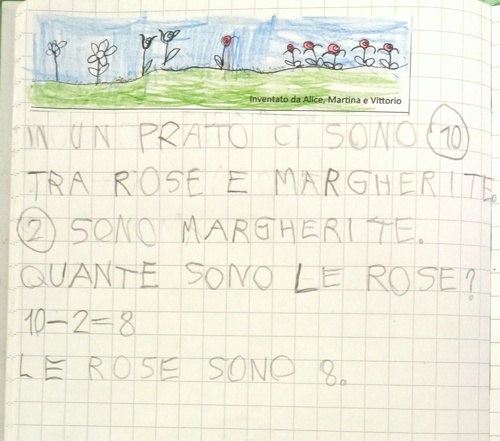 Inventato da Alice, Martina e Vittorio
IN UN PRATO CI SONO 10
TRA ROSE E MARGHERITE.
2 SONO MARGHERITE.
QUANTE SONO LE ROSE?
10-2=8
LE ROSE SONO 8.